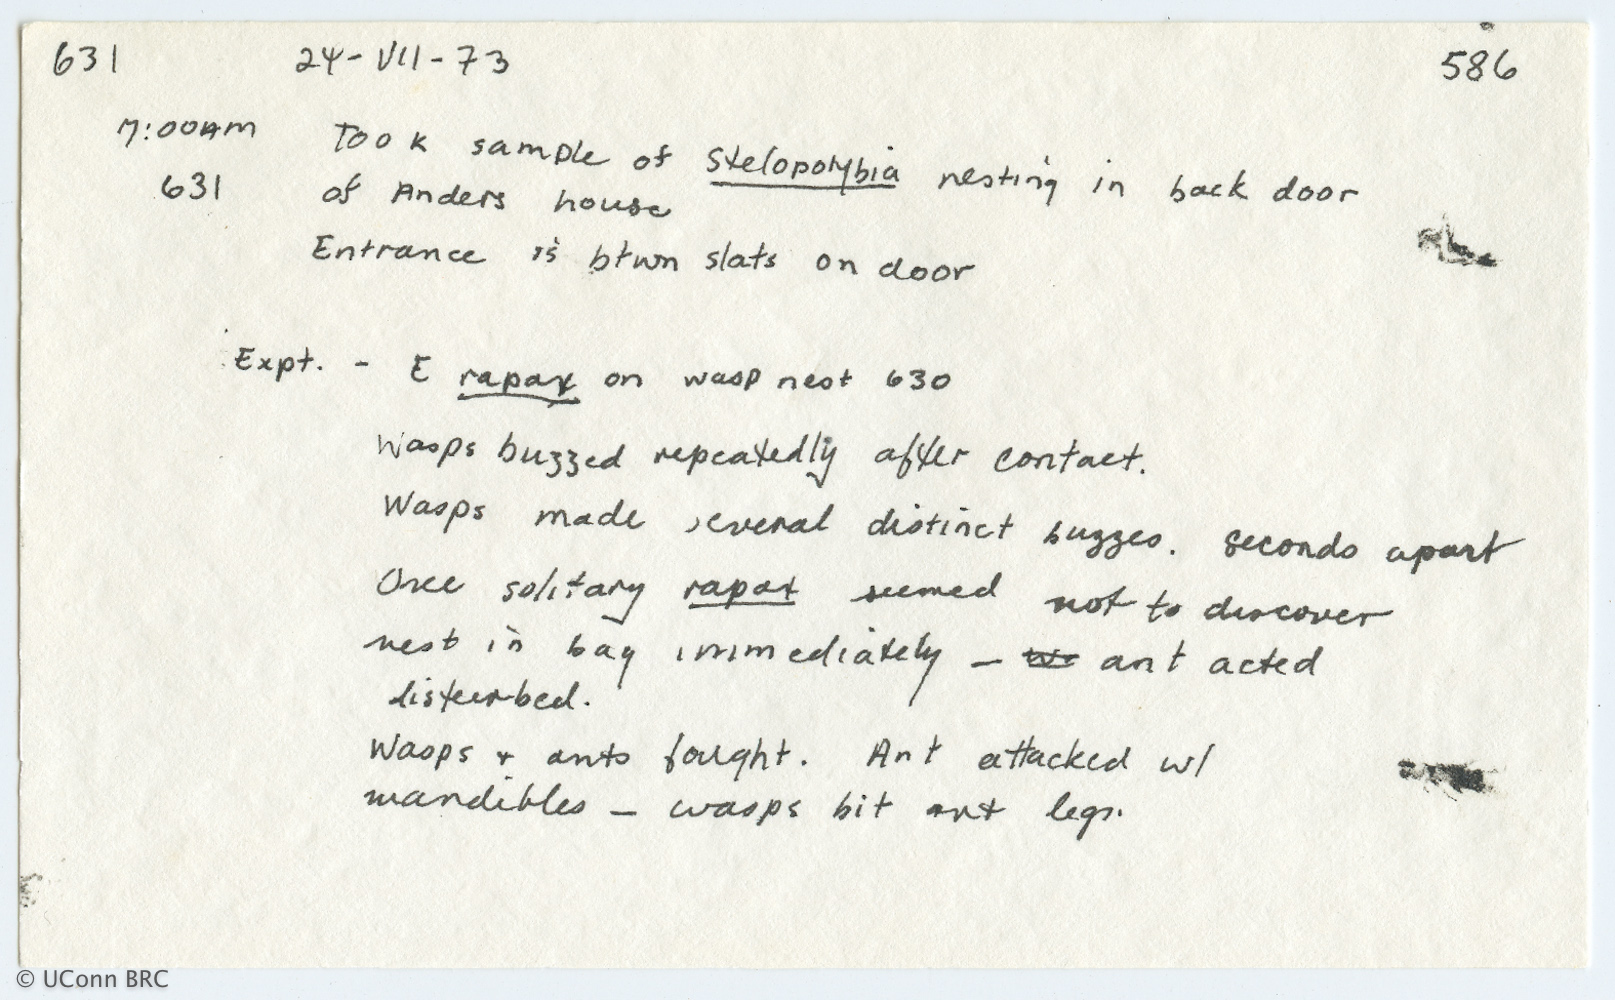 631 24-VII-73 586
7:00AM Took sample of Stelopolybia nesting in back door
631 of Anders house
Entrance is btwn slats on door
Expt. - E rapax on wasp nest 630
Wasps buzzed repeatedly after contact.
Wasps made several distinct buzzes. seconds apart
Once solitary rapax seemed not to discover
nest in bag immediately - ant acted
disturbed.
Wasps + ants fought. Ant attacked w/
mandibles - wasps bit ant legs.
© UConn BRC